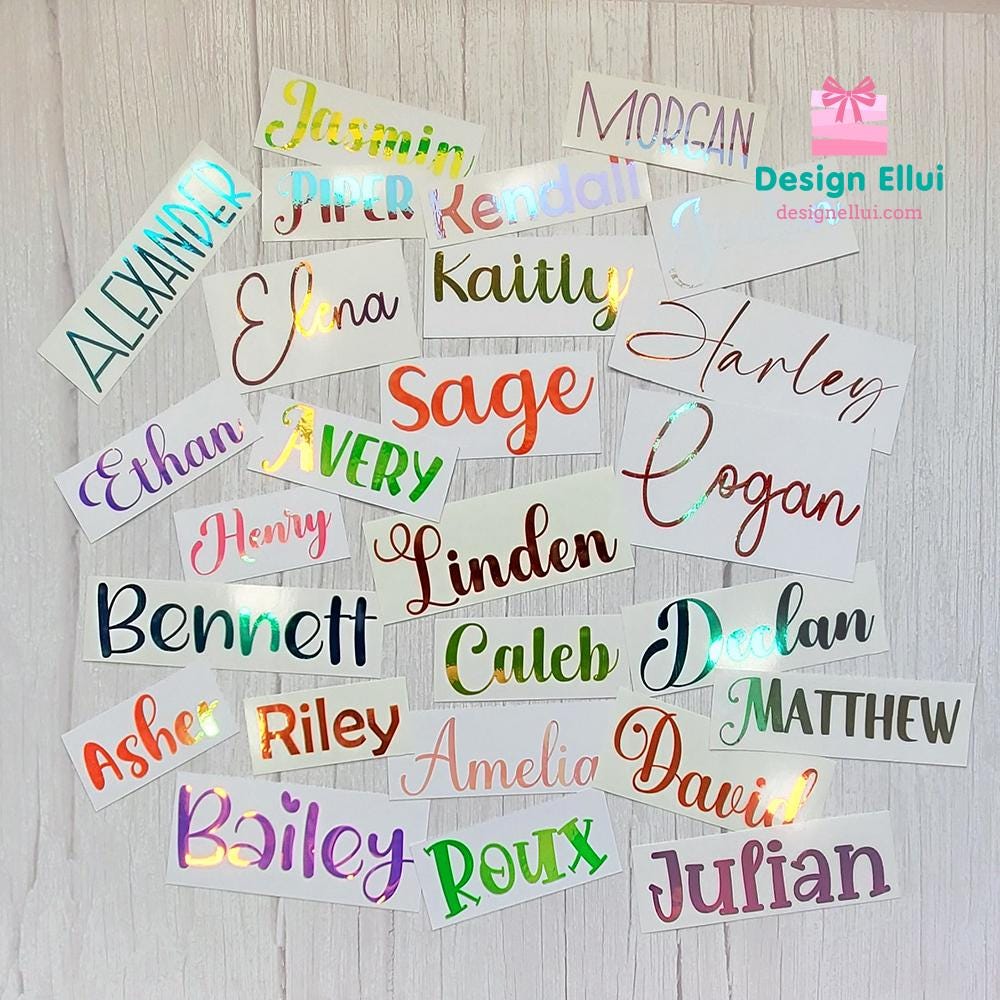 Jasmin
MORGAN
Design Ellui
designellui.com
ALEXANDER
PIPER
Kendall
Elena
Kaitly
Harley
Sage
Ethan
AVERY
Logan
Henry
Linden
Bennett
Caleb
Declan
Asher
Riley
Amelia
David
MATTHEW
Bailey
Roux
Julian